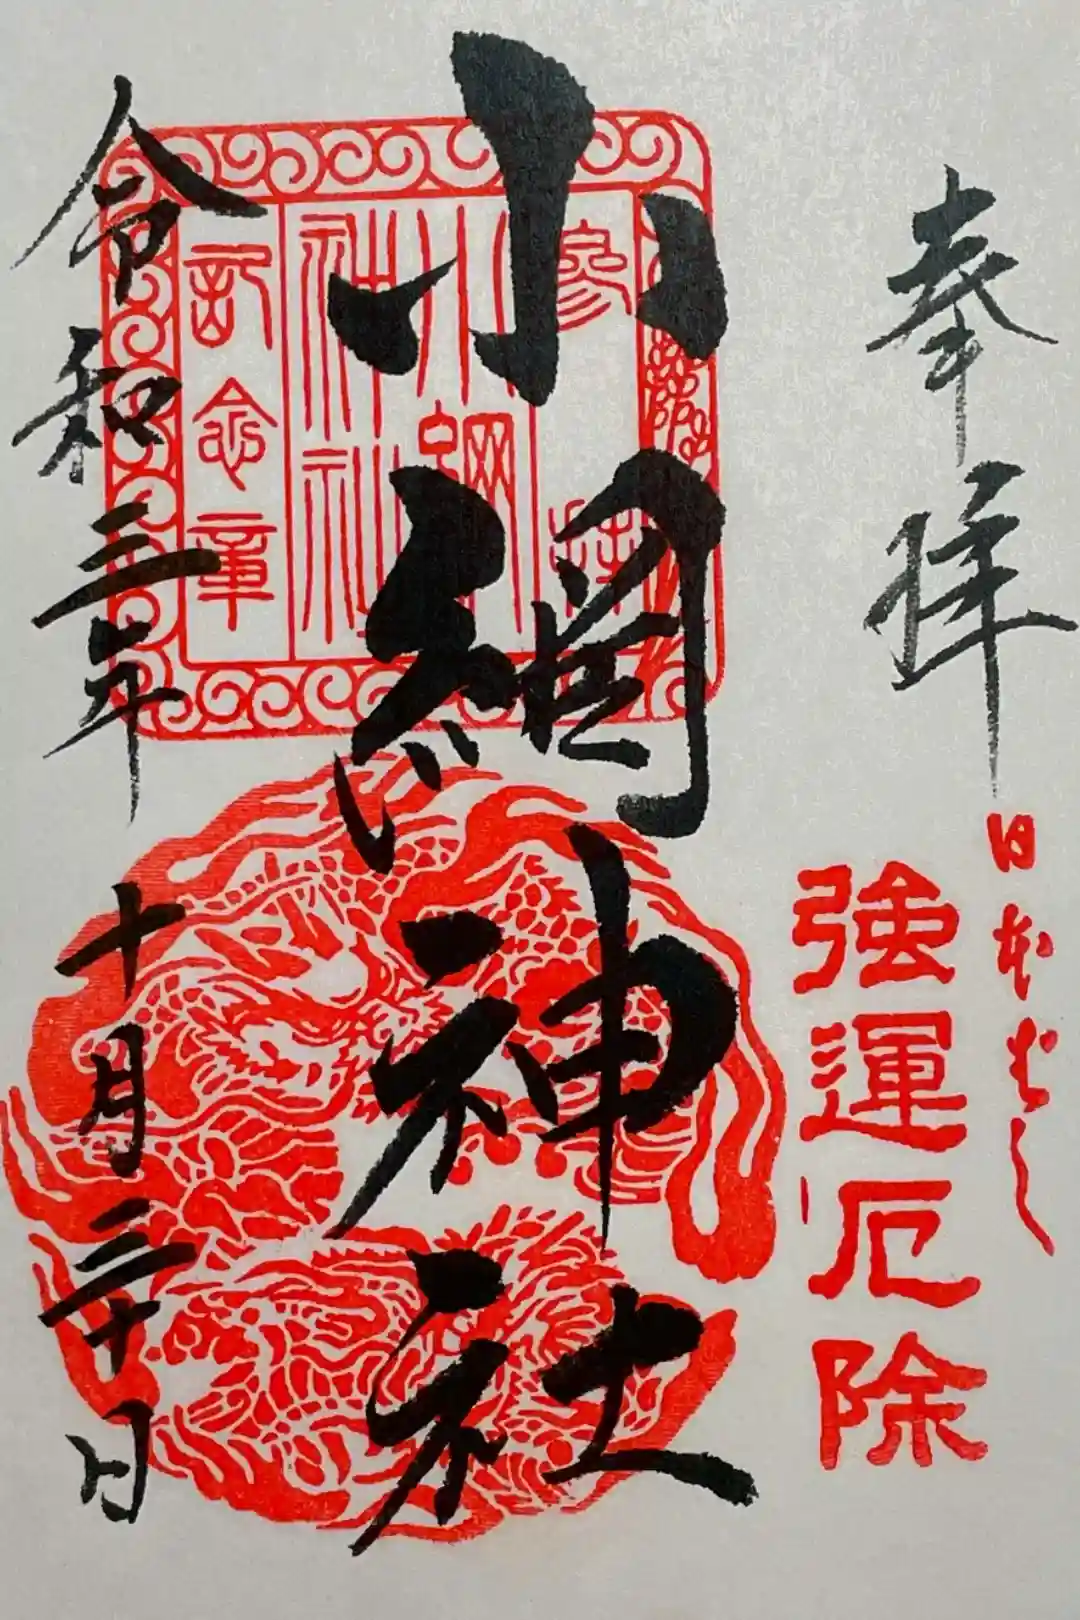 奉拝
日本ばし
強運厄除
小網神社
参拝
小網
神社
記念章
令和三年
十月二十日